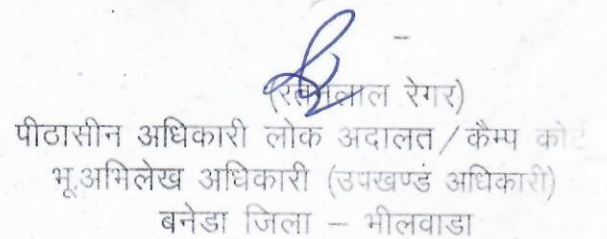 (रतनलाल रेगर)
पीठासीन अधिकारी लोक अदालत/कैम्प कोर्ट
भू.अभिलेख अधिकारी (उपखण्डं अधिकारी)
बनेडा जिला – भीलवाडा